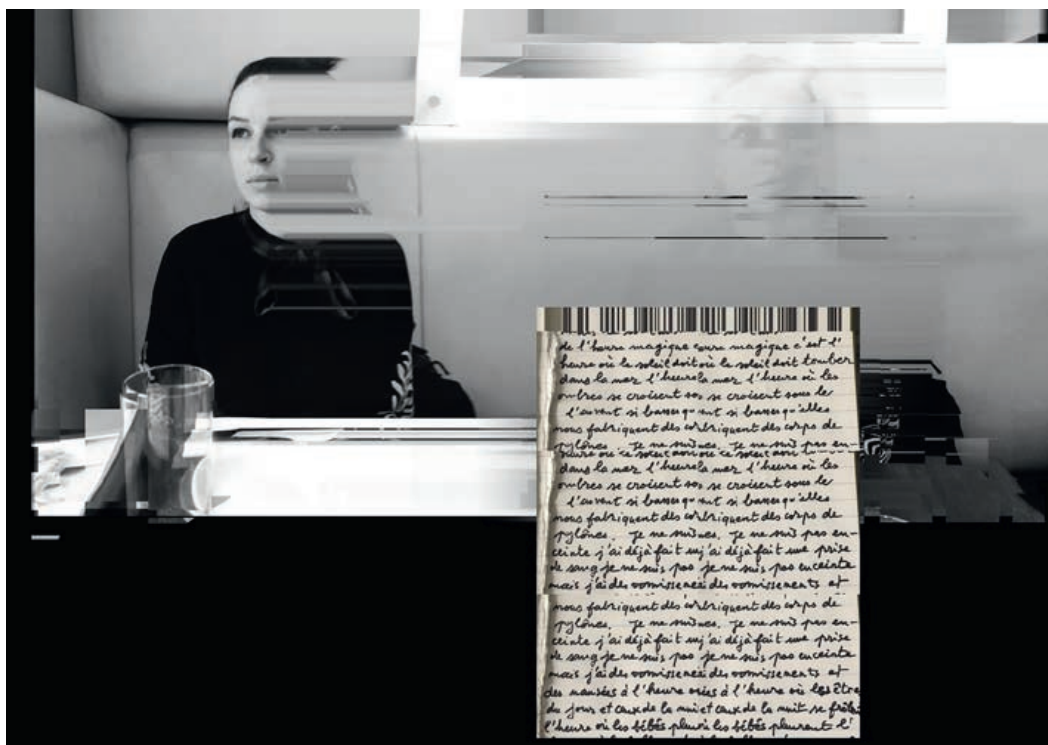 de l'heure magique eure magique c'est l'
heure où le soleil doit où le soleil doit tomber
dans la mer l'heure la mer l'heure où les
ombres se croisent sos se croisent sous le
l'auvent si basses qu ent si basses qu'elles
nous fabriquent des corbriquent des corps de
pylônes. Je ne suines. Je ne suis pas en-
dans la mer l'heure la mer l'heure où les
ombres se croisent sos se croisent sous le
l'auvent si basses qu ent si basses qu'elles
nous fabriquent des corbriquent des corps de
pylônes. Je ne suines. Je ne suis pas en-
ceinte j'ai déjà fait uuj'ai déjà fait une prise
de sang je ne suis pas je ne suis pas enceinte
mais j'ai des vomissemeai des vomissements et
nous fabriquent des corbriquent des corps de
pylônes. Je ne suines. Je ne suis pas en-
ceinte j'ai déjà fait uuj'ai déjà fait une prise
de sang je ne suis pas je ne suis pas enceinte
mais j'ai des vomissemeai des vomissements et
des nausées à l'heure oées à l'heure où les être
du jour et ceux de la nuit et ceux de la nuit se frôle
l'heure où les bébés pleurù les bébés pleurent l'